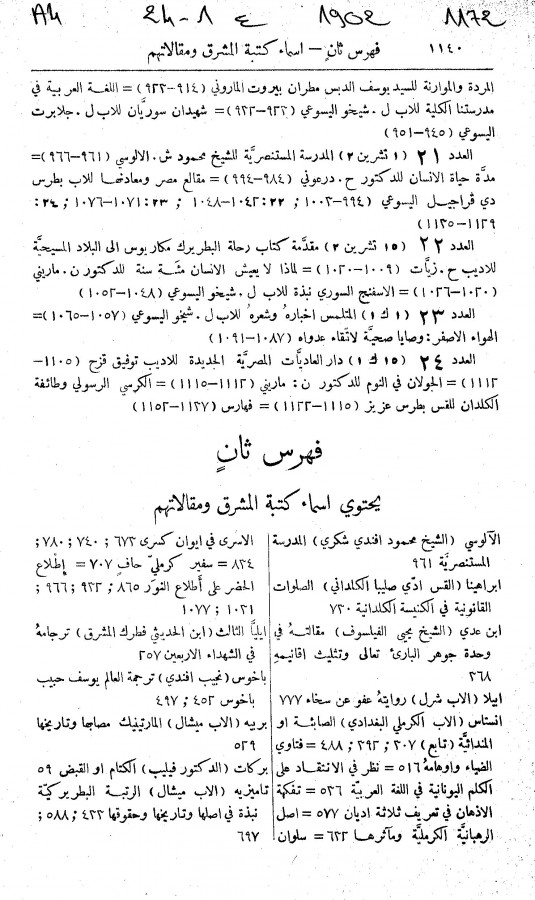 A4 24-1 ع 1902 1172
١١٤٠ فهرس ثانٍ – اسماء كتبة المشرق ومقالاتهم
المردة والموارنة للسيد يوسف الدبس مطران بيروت الماروني (٩١٤–٩٢٢) = اللغة العربية في
مدرستنا الكلية للاب ل. شيخو اليسوعي (٩٢٢–٩٣٢) = شهيدان سوريَّان للاب ل. جلابرت
اليسوعي (٩٤٥–٩٥١)
العدد ٢١ (١ تشرين ٢) المدرسة المستنصريَّة للشيخ محمود ش. الالوسي (٩٦١–٩٦٦) =
مدَّة حياة الانسان للدكتور ح. درعوني (٩٨٤–٩٩٤) = مقالع مصر ومعادنها للاب بطرس
دي ڤراجيل اليسوعي (٩٩٤–١٠٠٢ ; ٢٢: ١٠٤٢–١٠٤٨ ; ٢٣: ١٠٧١–١٠٧٦ ; ٢٤:
١١٢٩–١١٣٥)
العدد ٢٢ (١٥ تشرين ٢) مقدَّمة كتاب رحلة البطريرك مكاريوس الى البلاد المسيحيَّة
للاديب ح. زيَّات (١٠٠٩–١٠٢٠) = لماذا لا يعيش الانسان مئة سنة للدكتور ن. ماريني
(١٠٢٠–١٠٢٦) = الاسفنج السوري نبذة للاب ل. شيخو اليسوعي (١٠٤٨–١٠٥٢)
العدد ٢٣ (١ ك ١) المتلمس اخبارهُ وشعرهُ للاب ل. شيخو اليسوعي (١٠٥٧–١٠٦٥) =
الهواء الاصفر: وصايا صحيَّة لاتّقاء عدواه (١٠٨٧–١٠٩١)
العدد ٢٤ (١٥ ك ١) دار العاديَّات المصريَّة الجديدة للاديب توفيق قزح (١١٠٥–
١١١٢) = الجولان في النوم للدكتور ن: ماريني (١١١٢–١١١٥) = الكرسي الرسولي وطائفة
الكلدان للقس بطرس عزيز (١١١٥–١١٢٢) = فهارس (١١٣٧–١١٥٢)
فهرس ثانٍ
يحتوي اسماء كتبة المشرق ومقالاتهم
الآلوسي (الشيخ محمود افندي شكري) المدرسة
المستنصريَّة ٩٦١
ابراهينا (القس ادّي صليبا الكلداني) الصلوات
القانونية في الكنيسة الكلدانية ٧٣٠
ابن عدي (الشيخ يحيى الفيلسوف) مقالتهُ في
وحدة جوهر البارئ تعالى وتثليث اقانيمهِ
٣٦٨
ابيلا (الاب شرل) روايتهُ عفو عن سخاء ٧٧٧
انستاس (الاب الكرملي البغدادي) الصابئة او
المندائيَّة (تابع) ٣٠٧ ; ٣٩٢ ; ٤٨٨ = فتاوي
الضياء واوهامهُ ٥١٦ = نظر في الانتقاد على
الكلم اليونانية في اللغة العربيَّة ٥٣٦ = تفكهة
الاذهان في تعريف ثلاثة اديان ٥٧٧ = اصل
الرهبانيَّة الكرمليَّة ومآثرها ٦٢٢ = سلوان
الاسرى في ايوان كسرى ٦٧٣ ; ٧٤٠ ; ٧٨٠ ;
٨٣٤ = سفير كرمليّ حافٍ ٧٠٧ = إطلاع
الحضر على أَطلاع النَوَر ٨٦٥ ; ٩٣٢ ; ٩٦٦ ;
١٠٣١ ; ١٠٧٧
ايليَّا الثالث (ابن الحديثي فطرك المشرق) ترجامهُ
في الشهداء الاربعين ٢٥٧
باخوس (نجيب افندي) ترجمة العالم يوسف حبيب
باخوس ٤٥٢ ; ٤٩٧
بربيه (الاب ميشال) المارتينيك مصابها وتاريخها
٥٢٩
بركات (الدكتور فيليب) الكتام او القبض ٥٩
تاميزيه (الاب ميشال) الرتبة البطريركيَّة
نبذة في اصلها وتاريخها وحقوقها ٤٢٢ ; ٥٨٨ ;
٦٩٧